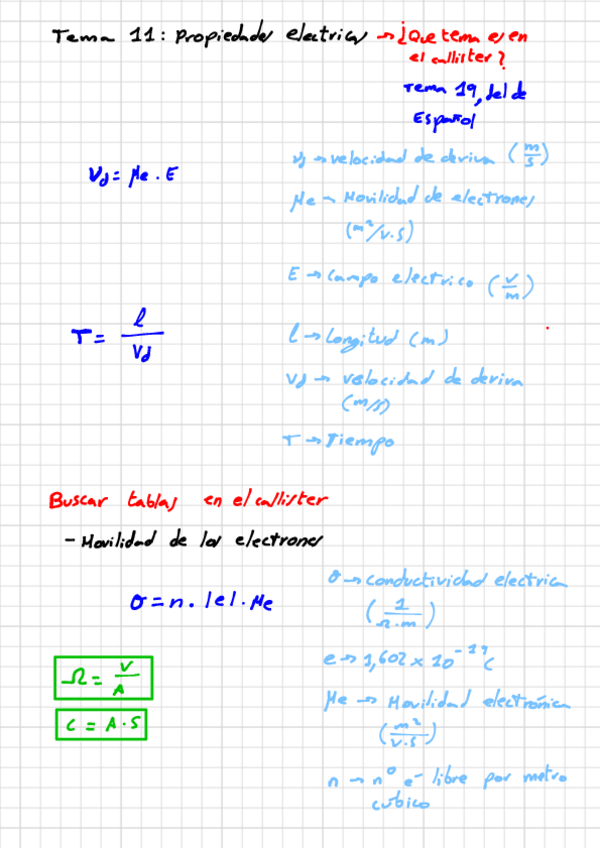 Tema 11: Propiedades electricas → ¿Que tema es en
el callister?
Tema 19, del de
Español
Vd = μe · E
vd → velocidad de deriva (m/s)
μe → Movilidad de electrones
(m²/v·s)
E → campo electrico (v/m)
T = l/Vd
l → longitud (m)
Vd → velocidad de deriva
(m/s)
T → Tiempo
Buscar tablas en el callister
- Movilidad de los electrones
σ = n · |e| · μe
σ → conductividad electrica
(1/Ω·m)
e → 1,602 × 10⁻¹⁹ C
Ω = V/A
C = A · s
μe → Movilidad electrónica
(m²/v·s)
n → nº e⁻ libre por metro
cubico